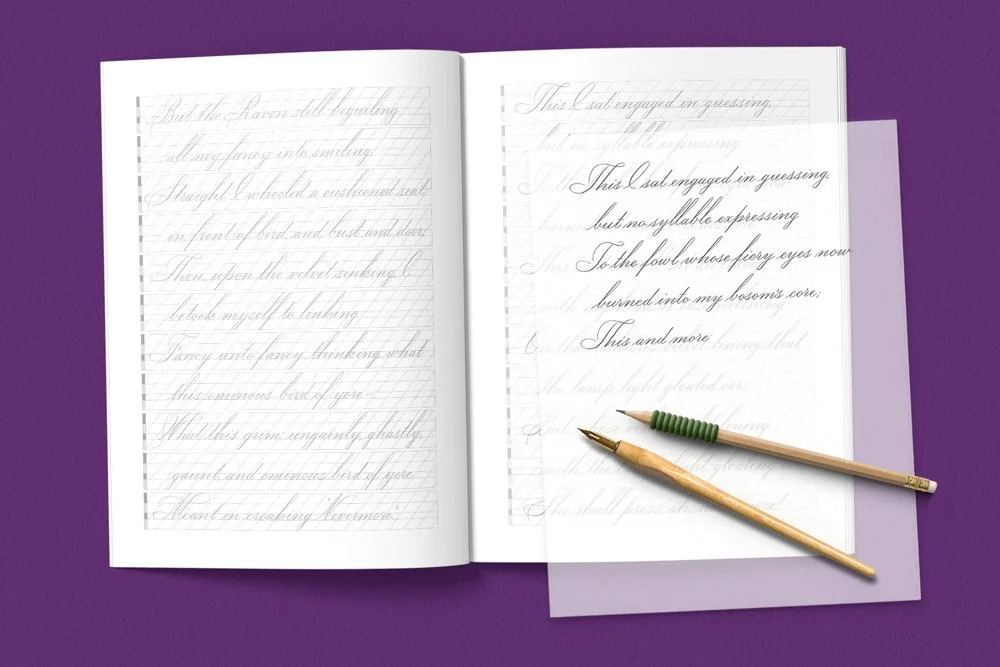 But the Raven still beguiling
all my fancy into smiling,
Straight I wheeled a cushioned seat
in front of bird, and bust and door;
Then, upon the velvet sinking, I
betook myself to linking
Fancy unto fancy, thinking what
this ominous bird of yore—
What this grim, ungainly, ghastly,
gaunt, and ominous bird of yore
Meant in croaking "Nevermore."
This I sat engaged in guessing,
but no syllable expressing
This I sat engaged in guessing,
but no syllable expressing
To the fowl whose fiery eyes now
burned into my bosom's core;
This and more
lining that
the lamp-light gloated o'er,
lining
with the lamp-light gloating o'er
She shall press, ah, nevermore!